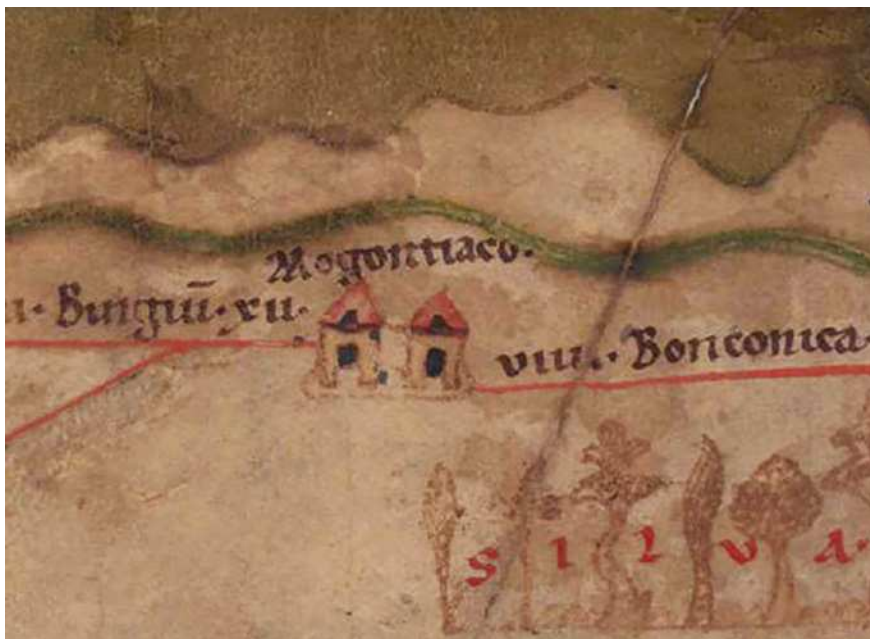 Mogontiaco.
Bingiū·xii·
viiii·Bonconica·
SILVA·